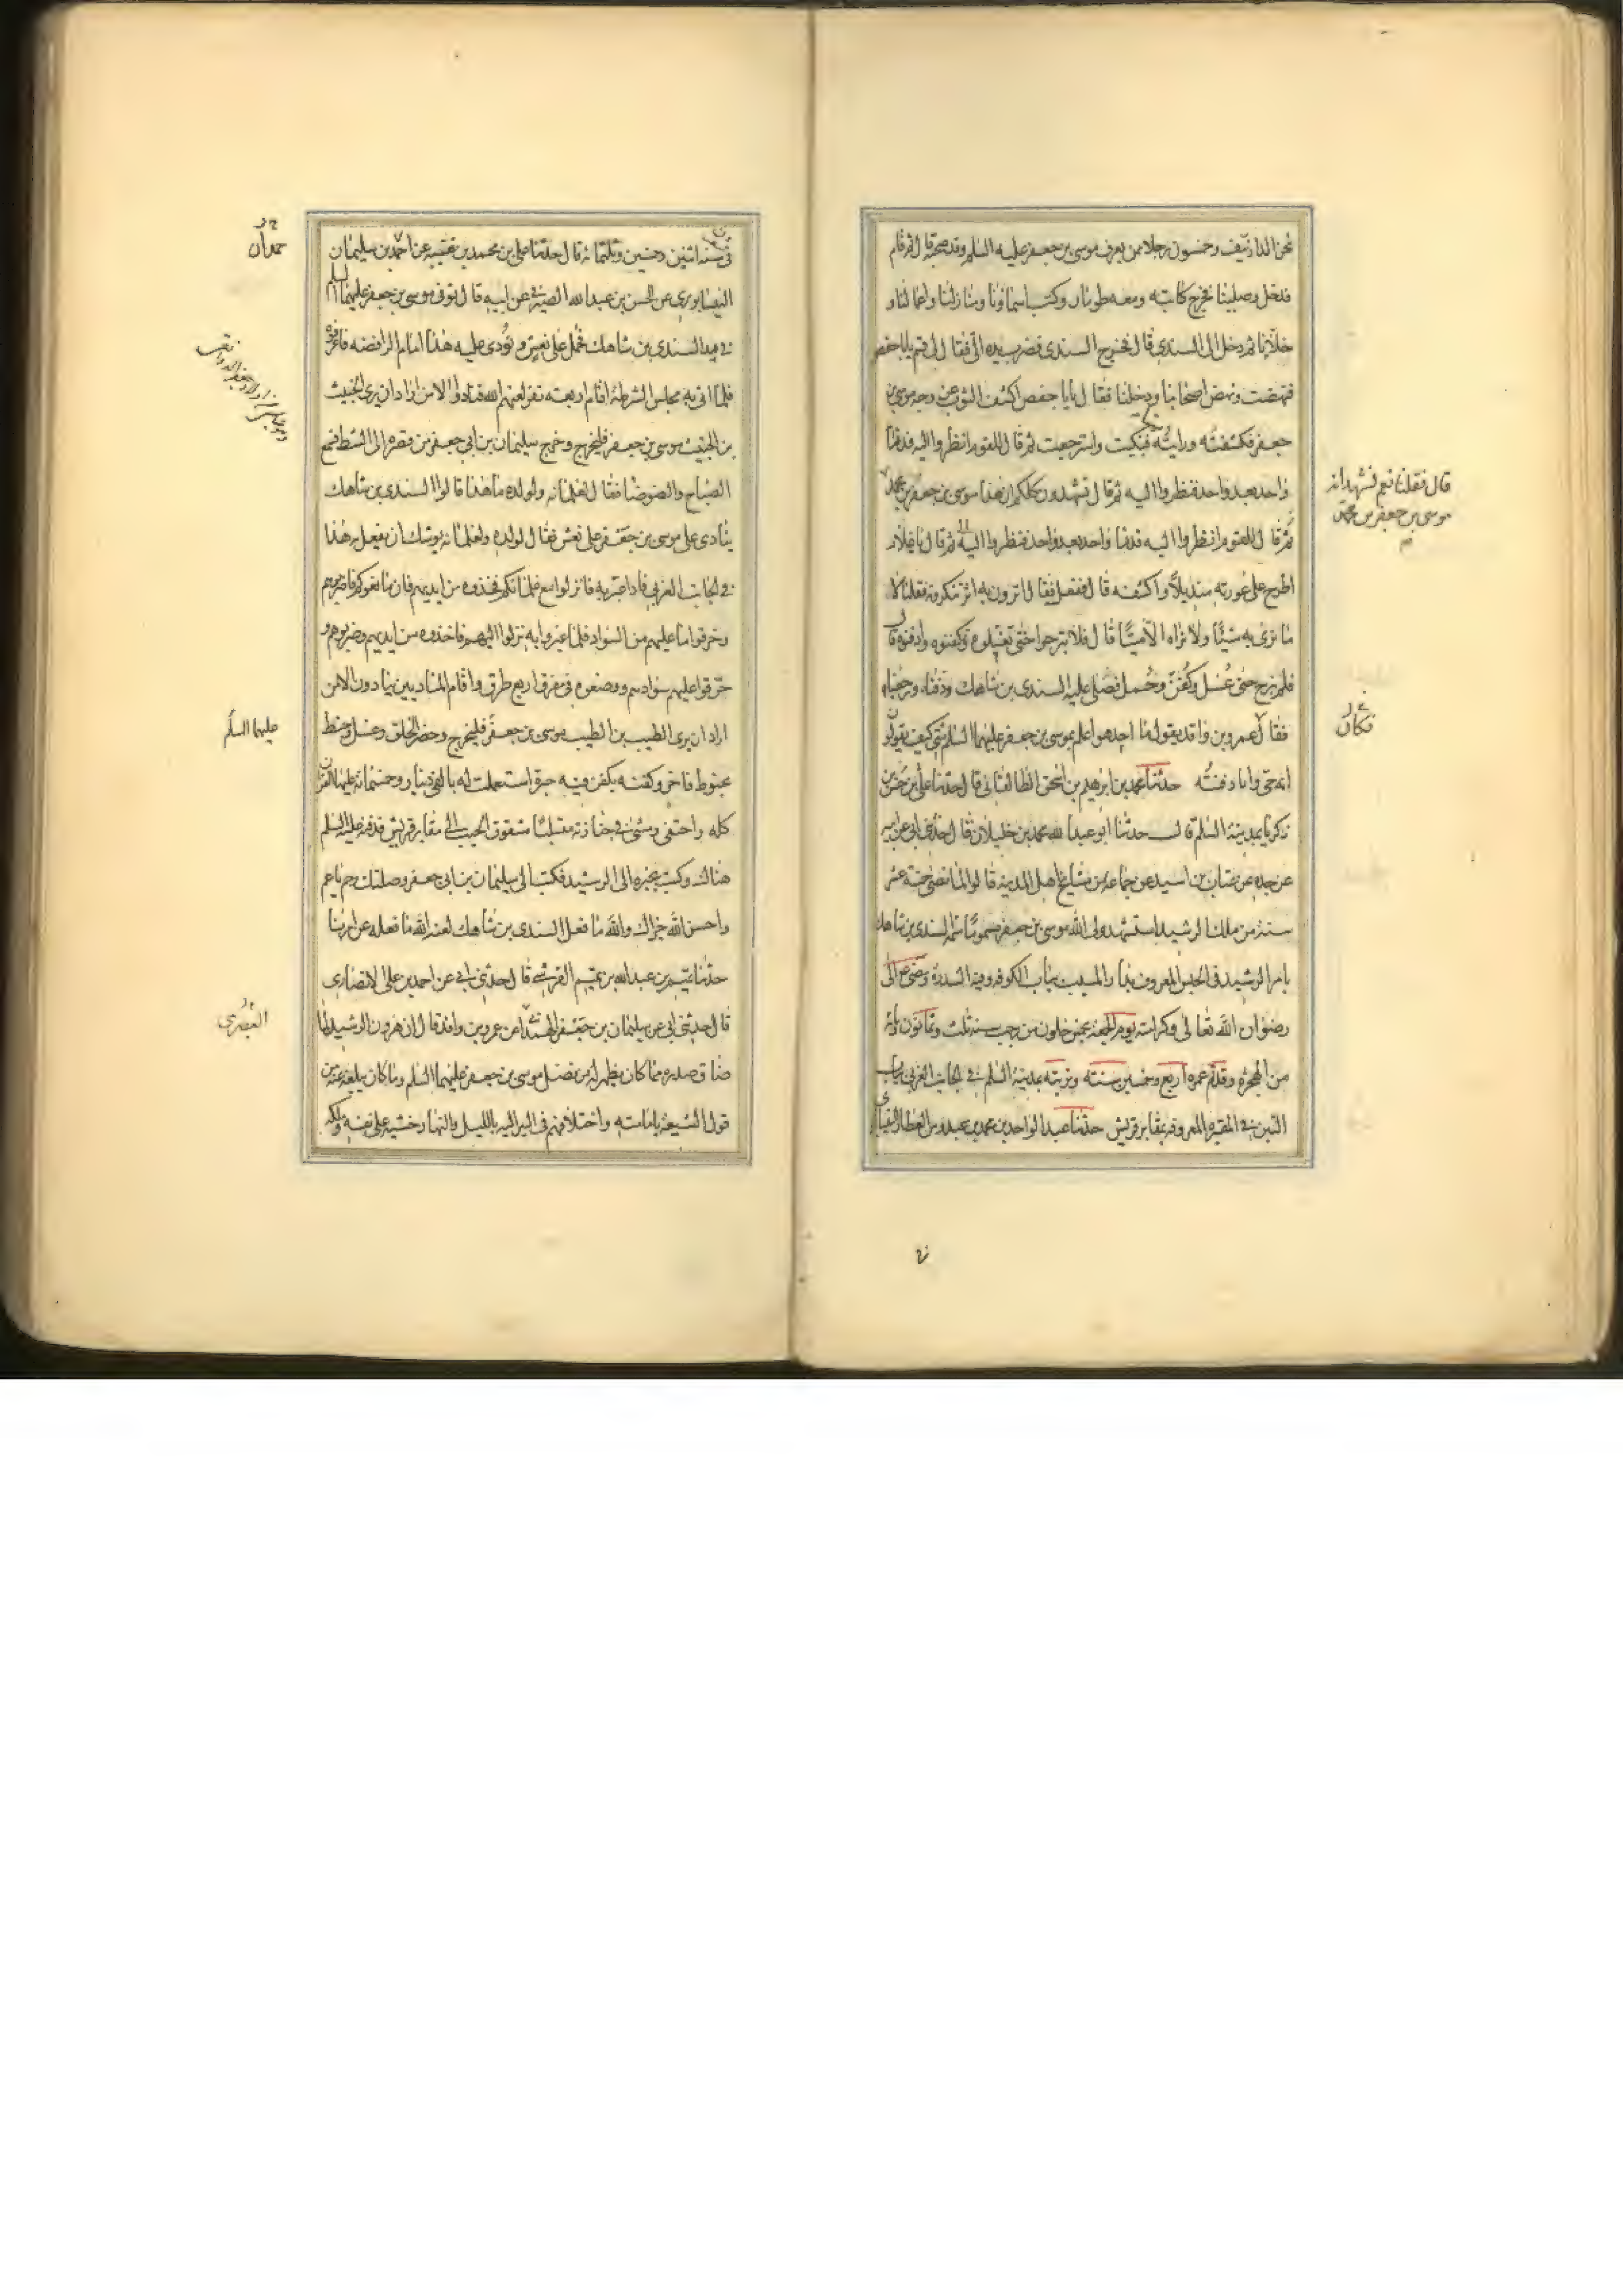 نحن الدار نيف وخمسون رجلا من يعرف موسى بن جعفر عليه السلم وقد صحبه قال ثم قام
فدخل وصلينا فخرج كاتبه ومعه طومار وكتب اسماؤنا ومنازلنا واعمالنا و
خلانا ثم دخل الى السندى قال فخرج السندى فضرب يده الى فقال لى قم يا با حفص
فنهضت ونهض اصحابنا ودخلنا فقال لى يا با حفص اكشف الثوب عن وجه موسى بن
جعفر فكشفته ورايته ميتا فبكيت واسترجعت ثم قال للقوم انظروا اليه فدنا
واحد بعد واحد فنظروا اليه ثم قال تشهدون كلكم ان هذا موسى بن جعفر بن محمد
قال فقلنا نعم نشهد انه
موسى بن جعفر بن محمد
ثم قال للقوم انظروا اليه فدنا واحد بعد واحد فنظروا اليه ثم قال يا غلام
اطرح على عورته منديلا واكشفه قال ففعل فقال اترون به اثر تنكرونه فقلنا لا
ما نرى به شيئا ولا نراه الا ميتا قال فلا تبرحوا حتى تغسلوه وتكفنوه وادفنوه قال
فلم نبرح حتى غسل وكفن وحمل فصلى عليه السندى بن شاهك ودفناه ورجعنا
فكان
فقال عمرو بن واقد يقول ما احد هو اعلم بموسى بن جعفر عليهما السلم منى كيف يقولون
انه حى وانا دفنته حدثنا محمد بن ابرهيم بن اسحق الطالقانى قال حدثنا على بن الحسن بن
زكريا بمدينة السلم قال حدثنا ابو عبد الله محمد بن خليلان قال حدثنى ابى عن ابيه
عن جده عن عتاب بن اسيد عن جماعة من مشايخ اهل المدينة قالوا لما مضى خمسة عشر
سنة من ملك الرشيد استشهد ولى الله موسى بن جعفر مسموما سمه السندى بن شاهك
بامر الرشيد فى الحبس المعروف بدار المسيب بباب الكوفه وفيه السدرة ومضى الى
رضوان الله تعالى وكرامته يوم الجمعة لخمس خلون من رجب سنة ثلث وثمانون ومائة
من الهجرة وقد تم عمره اربع وخمسين سنة وتربته بمدينة السلم فى الجانب الغربى بباب
التبن فى المقبرة المعروفه بمقابر قريش حدثنا عبد الواحد بن محمد بن عبدوس العطار النيسابورى
فى سنة اثنين وخمسين وثلثمائة قال حدثنا على بن محمد بن قتيبه عن احمد بن سليمان
حمدان
النيسابورى عن الحسن بن عبد الله الصيرفى عن ابيه قال توفى موسى بن جعفر عليهما السلم
فى يد السندى بن شاهك فحمل على نعش ونودى عليه هذا امام الرافضه فاعرفوه
فلما اتى به مجلس الشرطة اقام اربعة نفر لعنهم الله فنادوا الا من اراد ان يرى الخبيث
بن الخبيث موسى بن جعفر فليخرج وخرج سليمان بن ابى جعفر من قصره الى الشط فسمع
الصياح والضوضاء فقال لغلمانه ولولده ما هذا قالوا السندى بن شاهك
ينادى على موسى بن جعفر على نعش فقال لولده وغلمانه يوشك ان يفعل به هذا
فى الجانب الغربى فاذا عبر به فانزلوا مع غلمانكم فخذوه من ايديهم فان مانعوكم فاضربوهم
وخرقوا ما عليهم من السواد فلما عبروا به نزلوا اليهم فاخذوه من ايديهم وضربوهم و
خرقوا عليهم سوادهم ووضعوه فى مفرق اربع طرق واقام المناديين ينادون الا من
عليهما السلم
اراد ان يرى الطيب بن الطيب موسى بن جعفر فليخرج وحضر الخلق وغسل وحنط
بحنوط فاخر وكفنه بكفن فيه حبرة استعملت له بالفى دينار وخمسمائة عليها القران
كله واحتفى ومشى فى جنازته متسلبا مشقوق الجيب الى مقابر قريش فدفنه عليه السلم
هناك وكتب بخبره الى الرشيد فكتب الى سليمان بن ابى جعفر وصلتك رحم يا عم
واحسن الله جزاك والله ما فعل السندى بن شاهك لعنه الله ما فعله عن امرنا
حدثنا تميم بن عبد الله بن تميم القرشى قال حدثنى ابى عن احمد بن على الانصارى
قال حدثنى ابى عن سليمان بن جعفر عن عمر بن واقد قال ان هرون الرشيد لما
البصرى
ضاق صدره مما كان يظهر له من فضل موسى بن جعفر عليهما السلم وما كان يبلغه عنه من
قول الشيعة بامامته واختلافهم فى السر اليه بالليل والنهار خشيه على نفسه وملكه